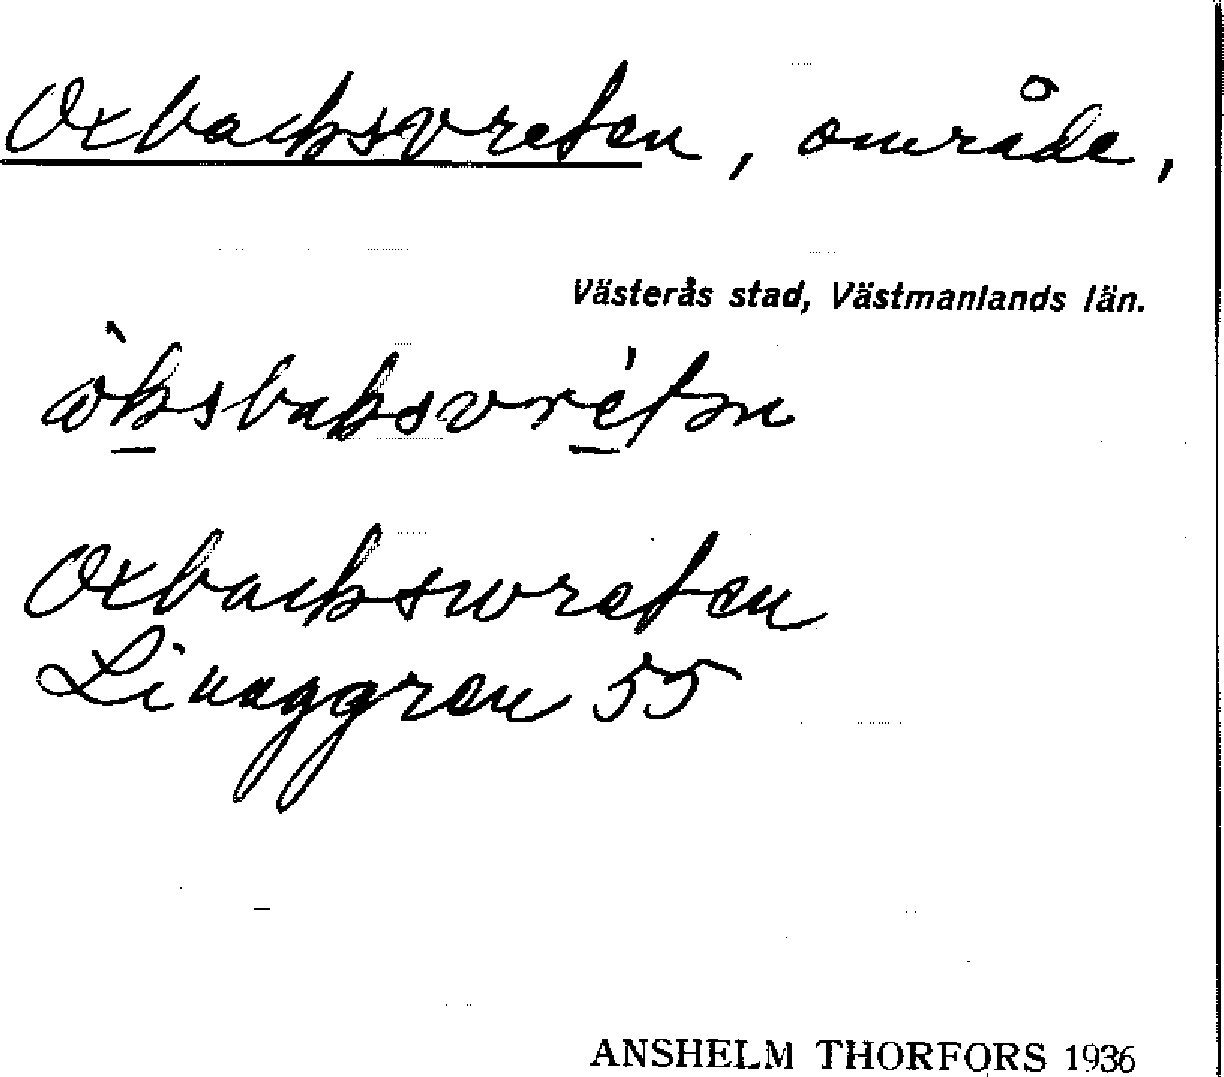 Oxbacksvreten, område,
Västerås stad, Västmanlands län.
òksbaksvrétən
Oxbackswreten
Linaggren 55
ANSHELM THORFORS 1936